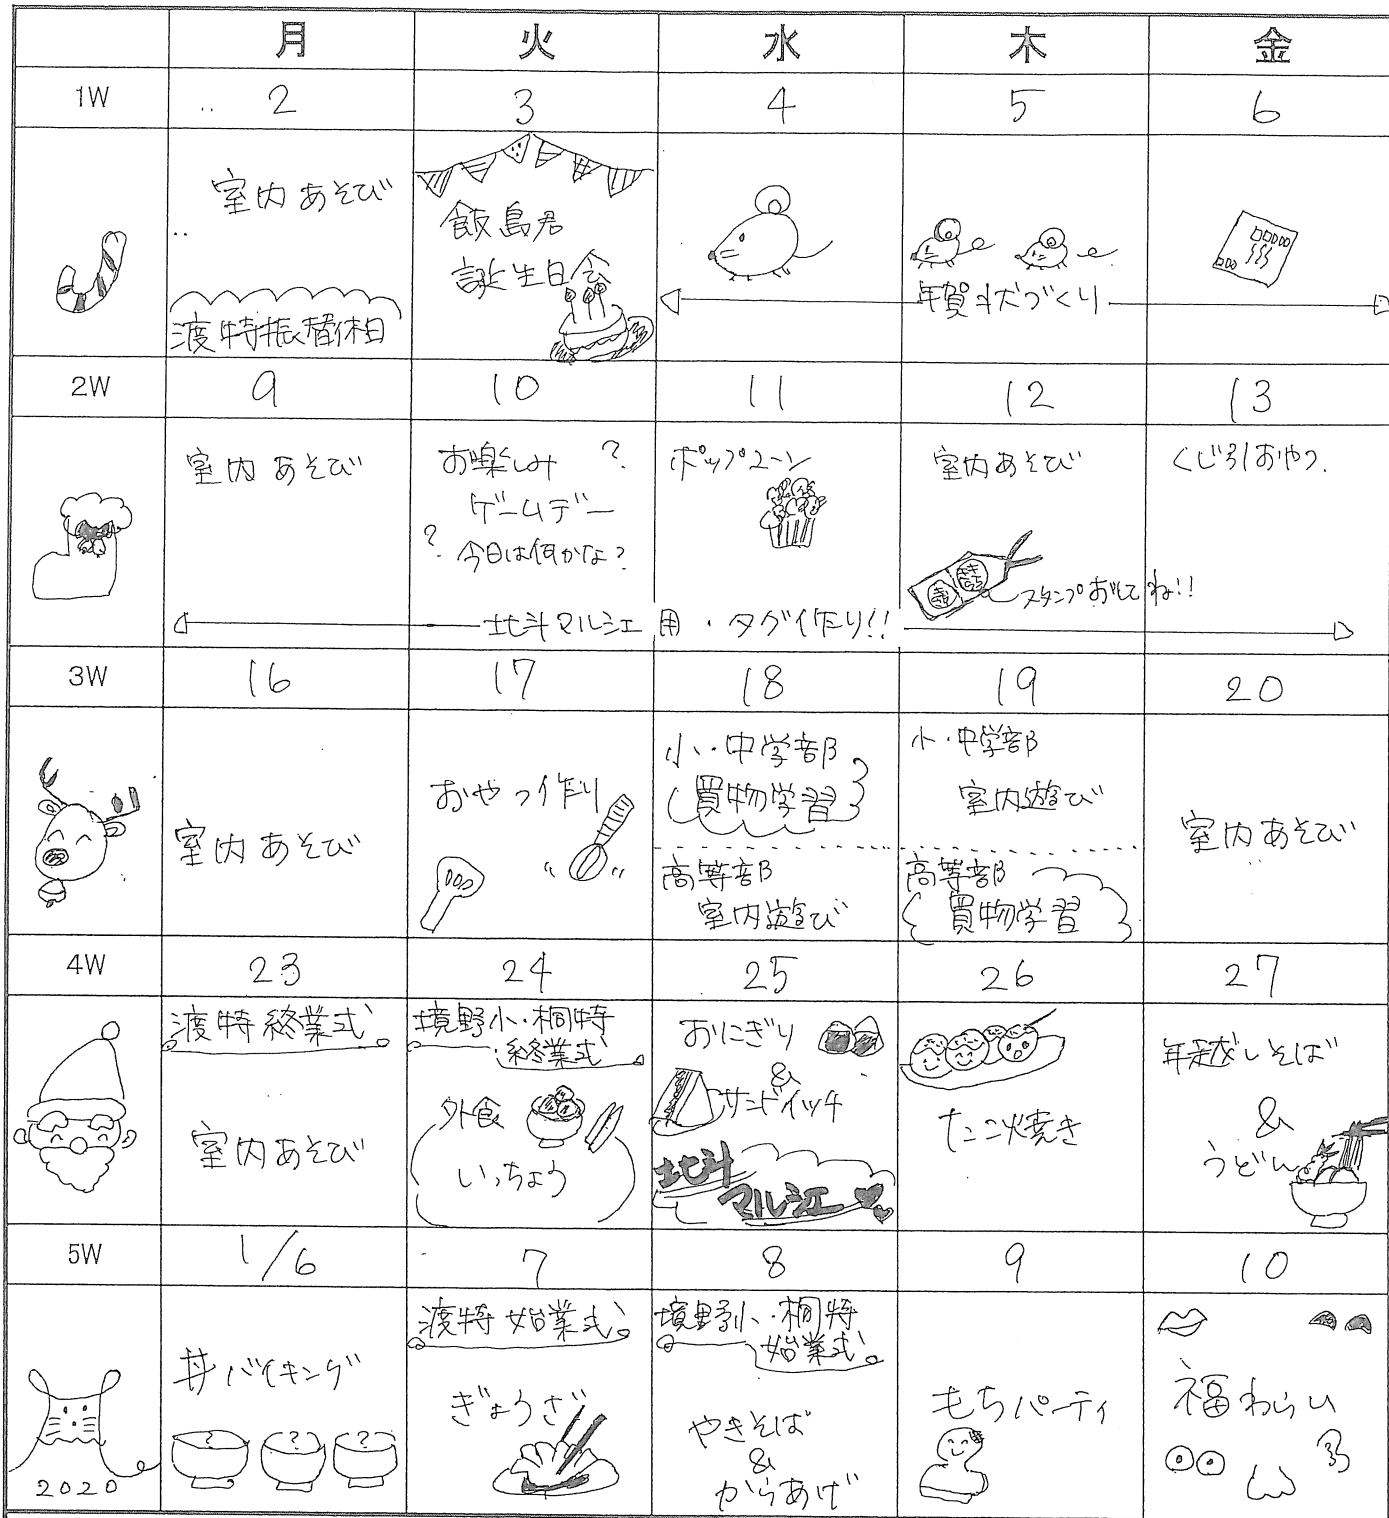 月 火 水 木 金
1W 2 3 4 5 6
室内あそび
渡特振替休日
飯島君
誕生日会
年賀状づくり
2W 9 10 11 12 13
室内あそび
お楽しみ ?
ゲームデー
? 今日は何かな?
ポップコーン
室内あそび
スタンプおしてね!!
くじ引おやつ.
北斗マルシェ用・タグ作り!!
3W 16 17 18 19 20
室内あそび
おやつ作り
小・中学部
買物学習
高等部
室内遊び
小・中学部
室内遊び
高等部
買物学習
室内あそび
4W 23 24 25 26 27
渡特終業式
室内あそび
境野小・桐特
終業式
外食
いっちょう
おにぎり
&
サンドイッチ
北斗
マルシェ
たこ焼き
年越しそば
&
うどん
5W 1/6 7 8 9 10
2020
丼バイキング
? ? ?
渡特始業式
ぎょうざ
境野小・桐特
始業式
やきそば
&
からあげ
もちパーティ
福わらい